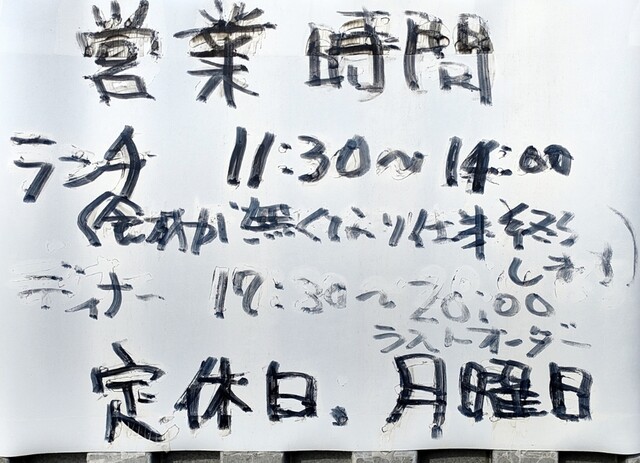 営業時間
ランチ 11:30〜14:00
(食材が無くなり仕第終了
します)
ディナー 17:30〜20:00
ラストオーダー
定休日、月曜日